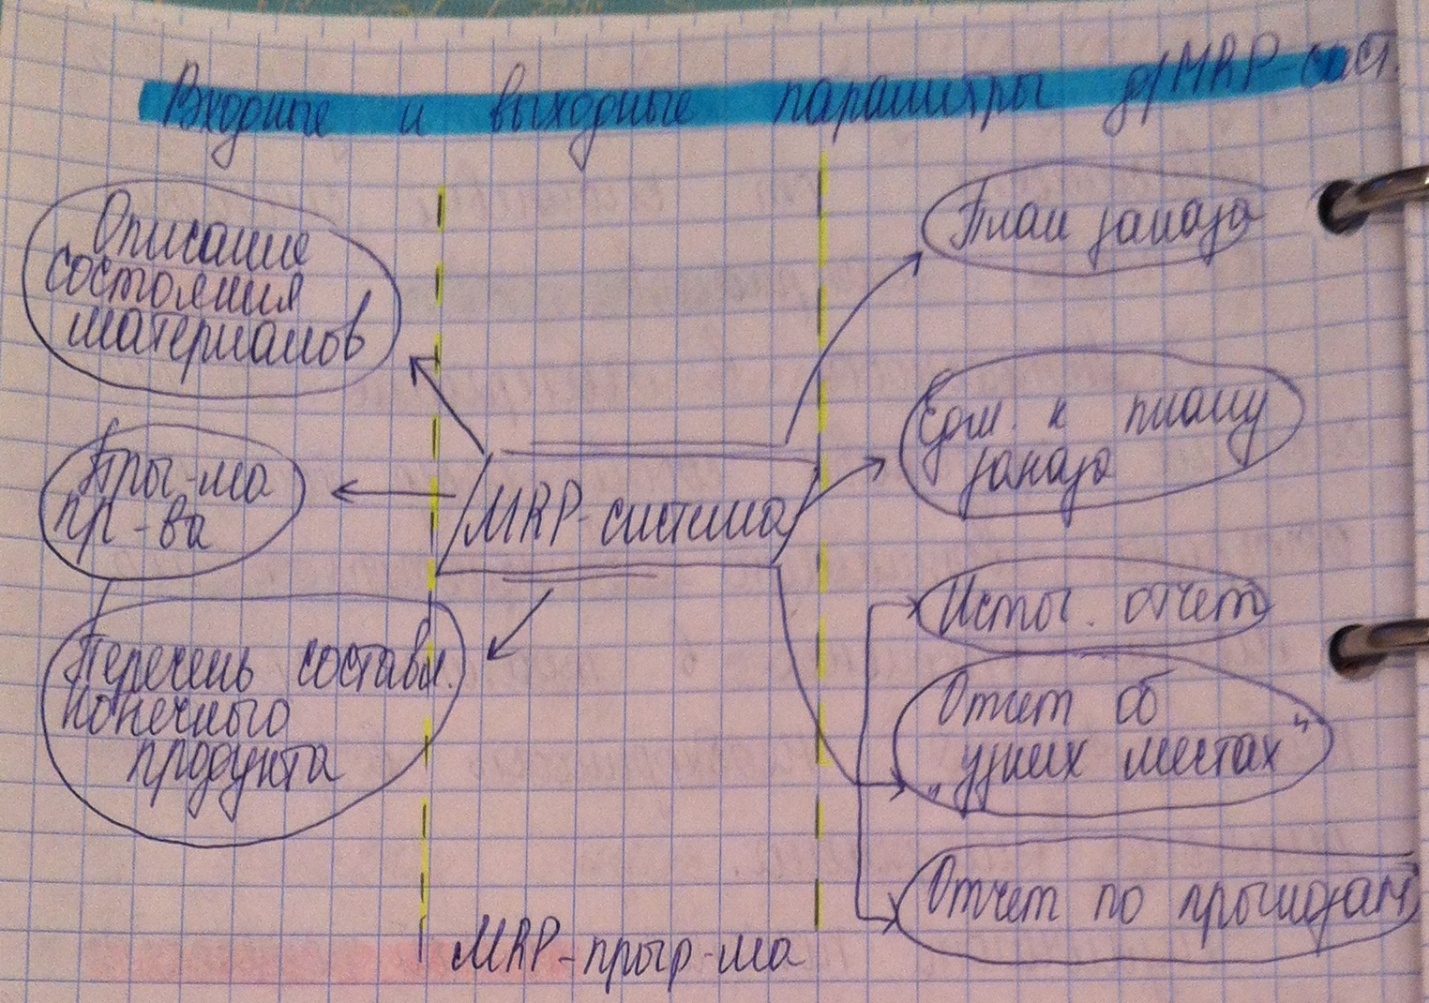 Входные и выходные параметры д/MRP-сист.
Описание
состояния
материалов
Прог-ма
пр-ва
Перечень составл.
конечного
продукта
MRP-система
План заказа
Изм. к плану
заказа
Испол. отчет
Отчет об
„узких местах"
Отчет по прогнозам
MRP-прогр-ма